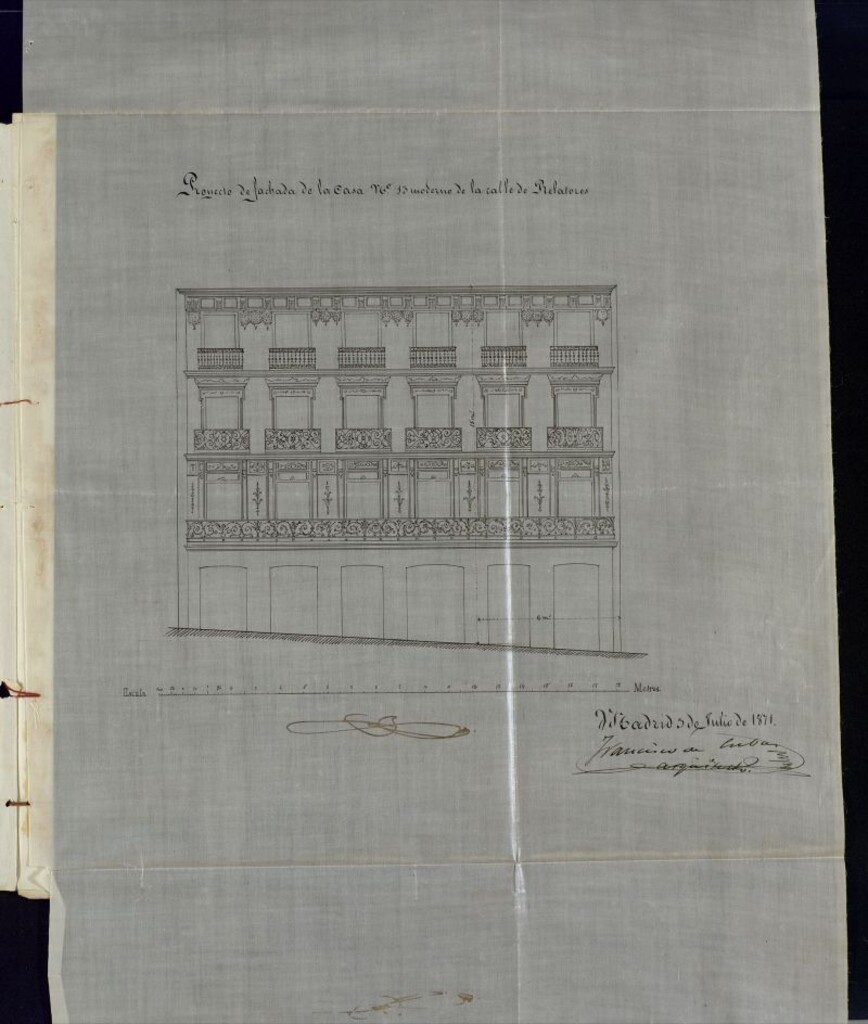 Proyecto de fachada de la Casa Nº 13 moderno de la calle de Relatores
6 m.
Escala
Metros
Madrid 3 de Julio de 1871.
Francisco de Cubas
arquitecto.